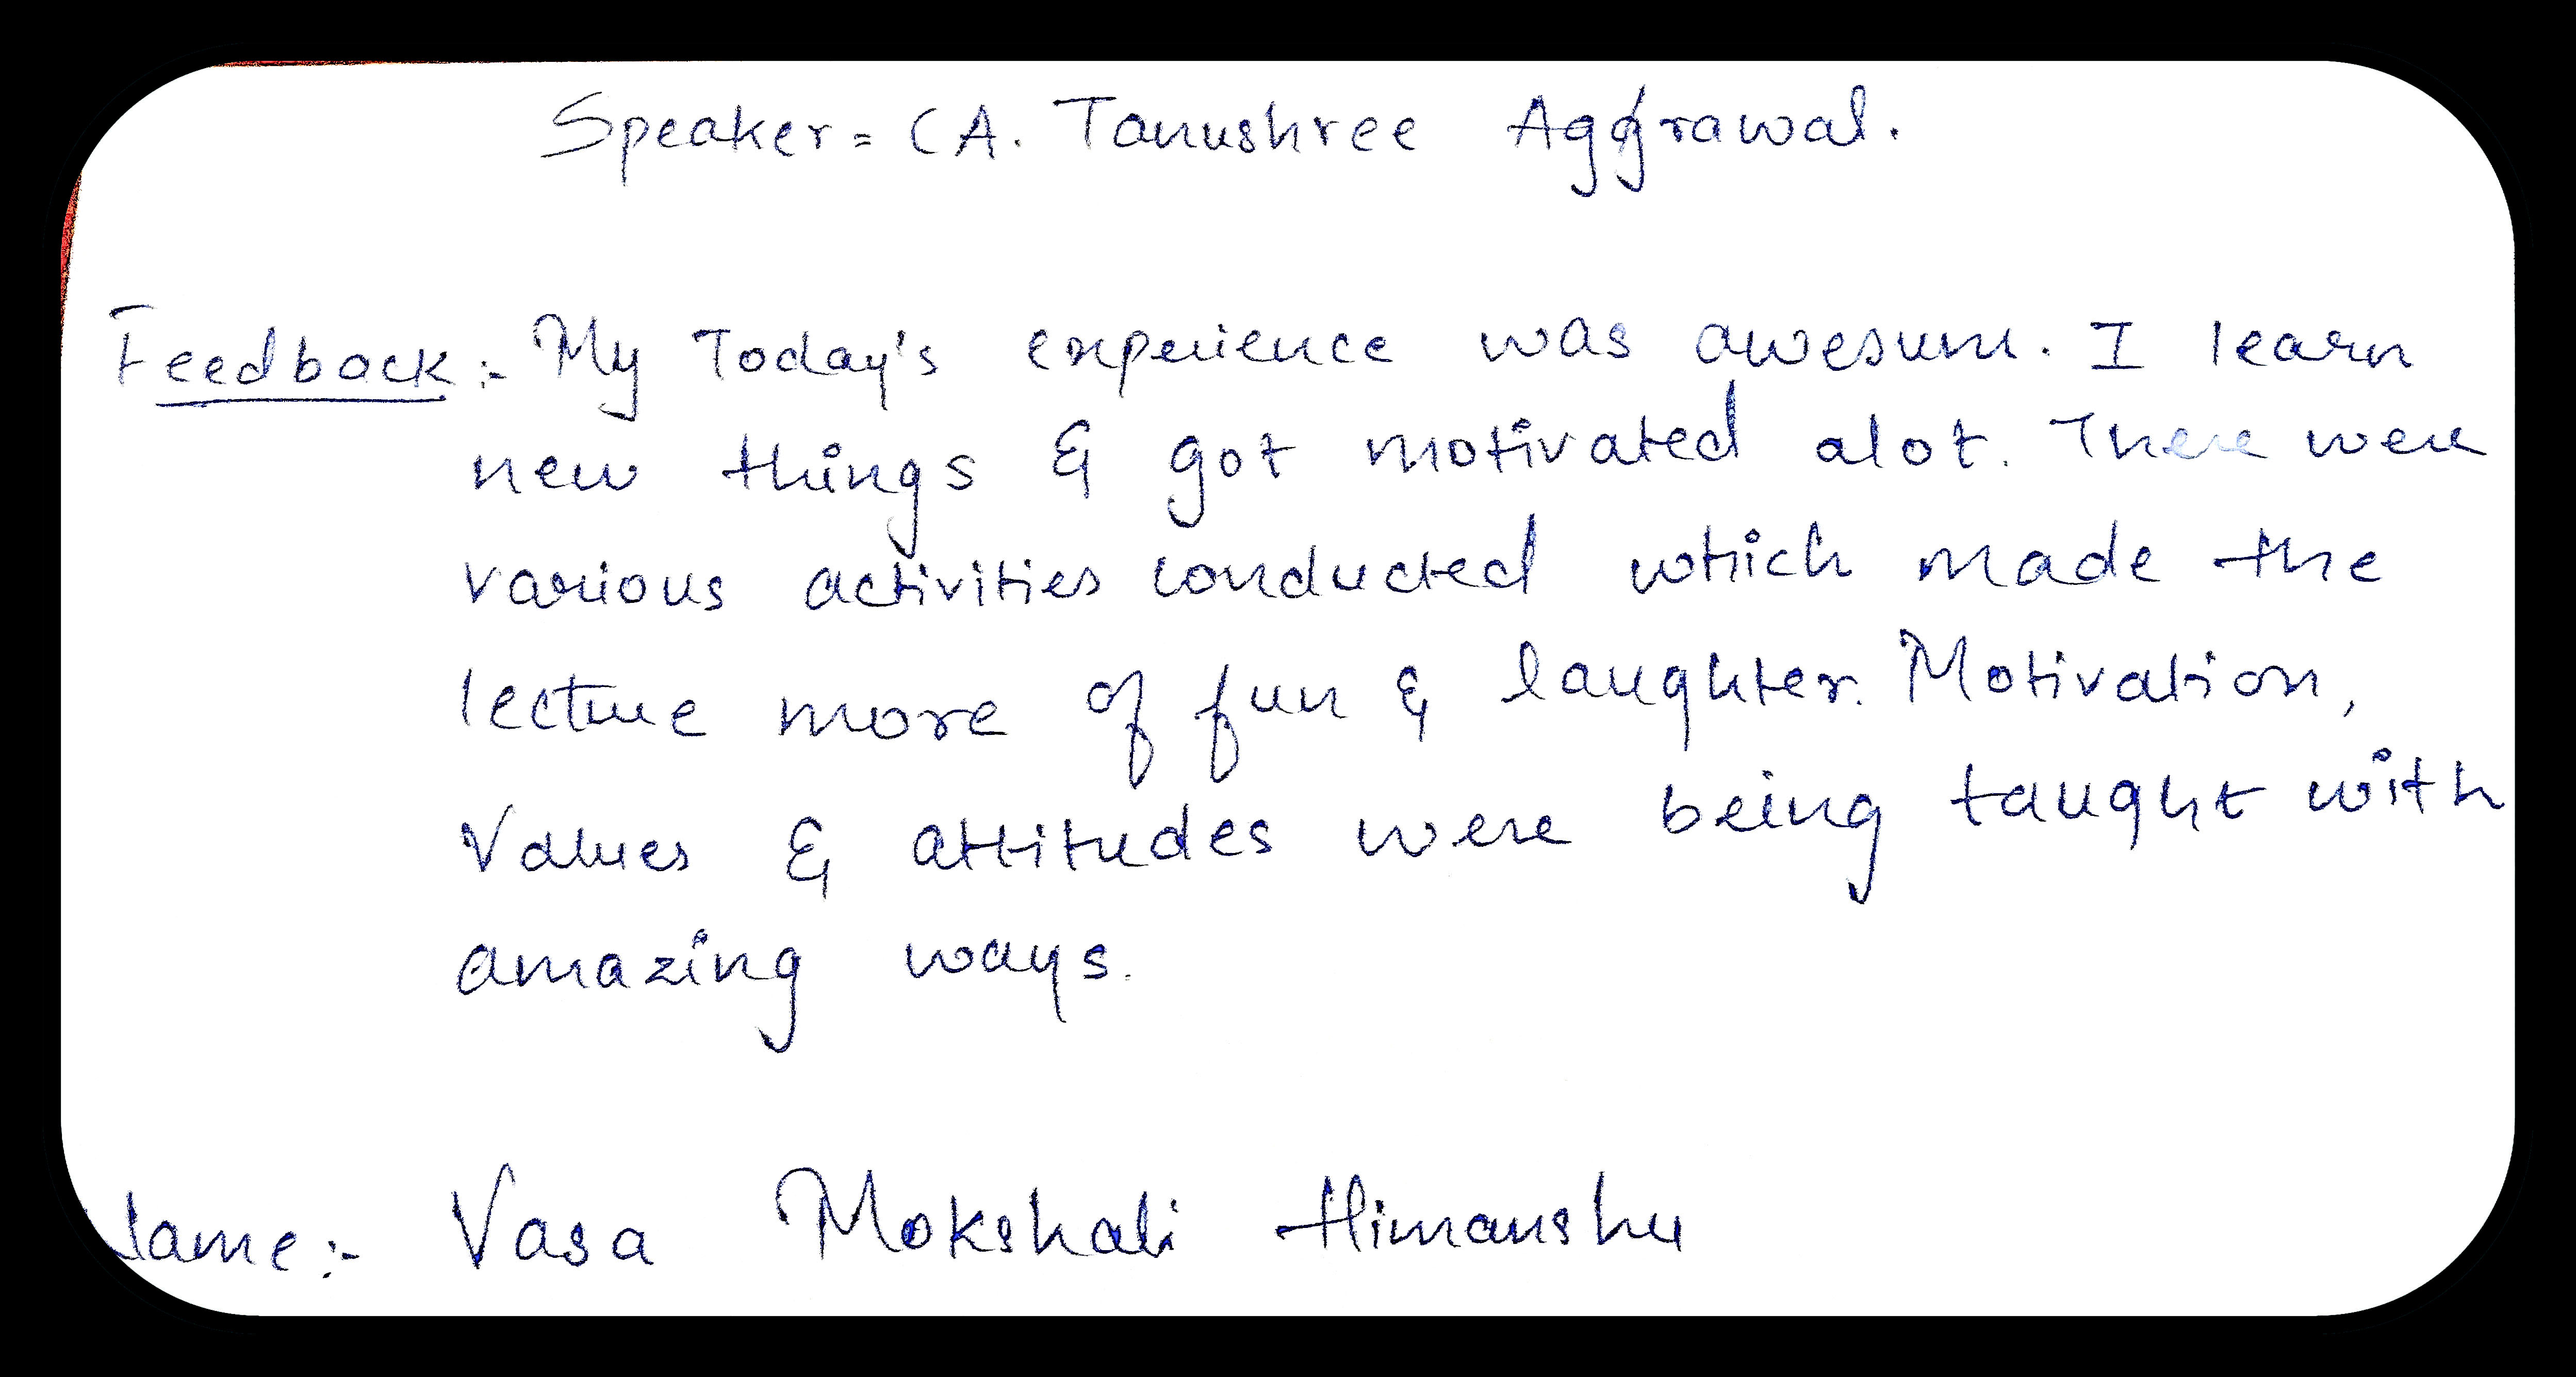 Speaker = CA. Tanushree Aggrawal.
Feedback :- My Today's experience was awesum. I learn
new things & got motivated alot. There were
various activities conducted which made the
lecture more of fun & laughter. Motivation,
Values & attitudes were being taught with
amazing ways.
Name :- Vasa Mokshali Himanshu